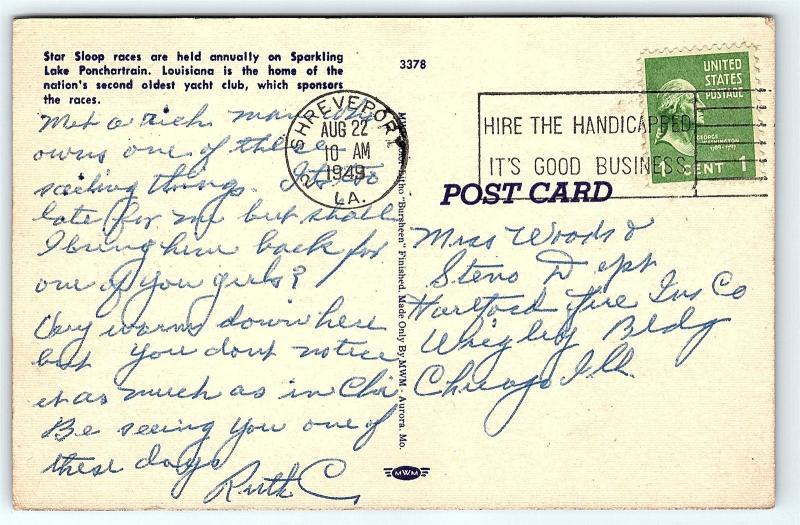 Star Sloop races are held annually on Sparkling
Lake Ponchartrain. Louisiana is the home of the
nation's second oldest yacht club, which sponsors
the races.
3378
SHREVEPORT
AUG 22
10 AM
1949
LA.
HIRE THE HANDICAPPED
IT'S GOOD BUSINESS
UNITED
STATES
POSTAGE
GEORGE
WASHINGTON
CENT 1
POST CARD
Met a rich man who
owns one of these
sailing things. Its to
late for me but shall
I bring him back for
one of you girls?
Very warm down here
but you dont notice
it as much as in Chi
Be seeing you one of
these days
Ruth C
Litho "Bursheen" Finished. Made Only By MWM - Aurora, Mo.
MWM
Miss Woods &
Steno Dept
Hartford Fire Ins Co
Wrigley Bldg
Chicago Ill.